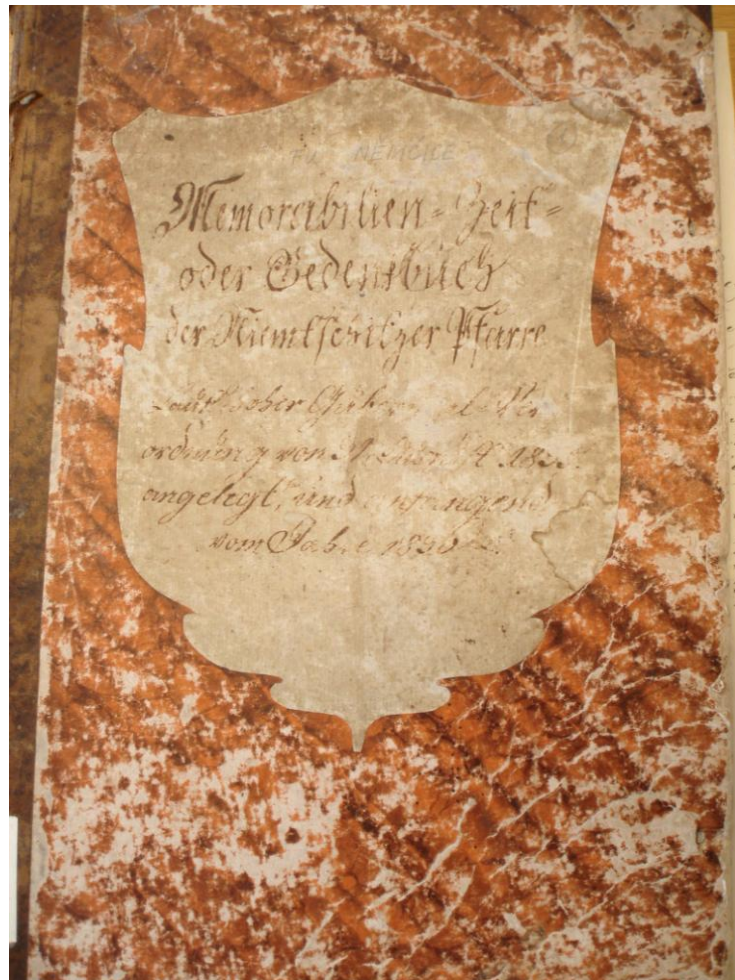 FÚ NĚMČICE
Memorabilien= Zeit=
oder Gedenkbuch
der Niemtschitzer Pfarre
Laut hoher
ordnung von
angelegt, und anfangend
vom Jahre 1836